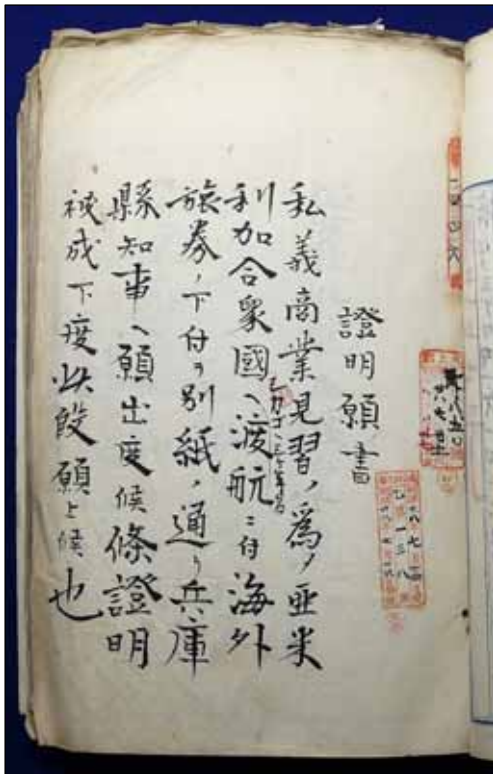 證明願書
私義商業見習ノ為メ亜米
利加合衆國ヘ渡航ニ付海外
旅券ノ下付ヲ別紙ノ通リ兵庫
縣知事ヘ願出度候條證明
被成下度此段願上候也